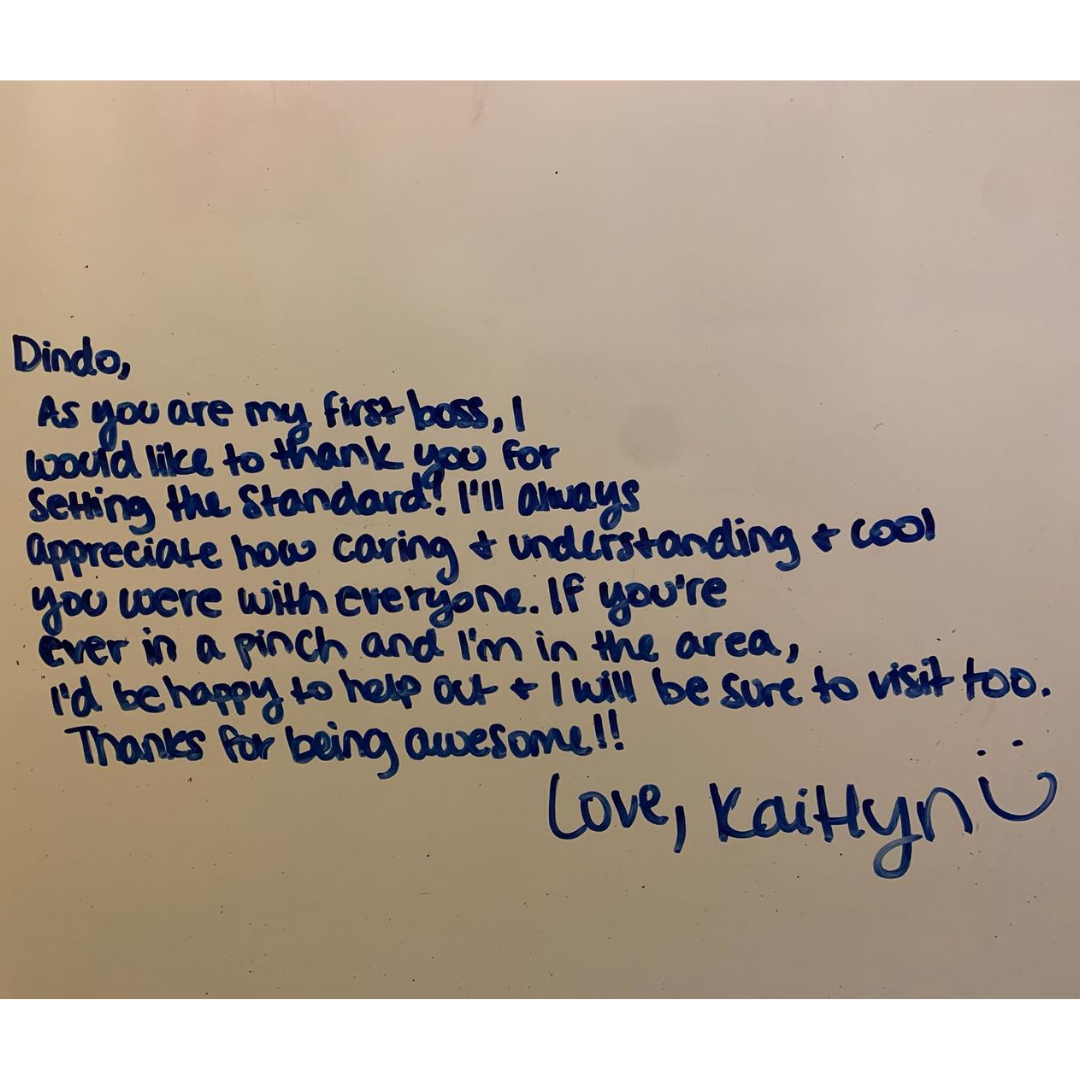 Dindo,
As you are my first boss, I
would like to thank you for
setting the standard! I'll always
appreciate how caring + understanding + cool
you were with everyone. If you're
ever in a pinch and I'm in the area,
I'd be happy to help out + I will be sure to visit too.
Thanks for being awesome!!
Love, Kaitlyn :)